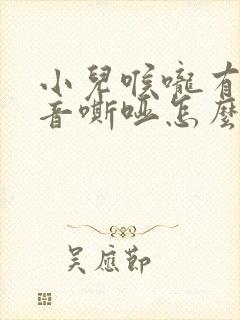 小兒喉嚨有
音嘶啞怎麼
吴應節